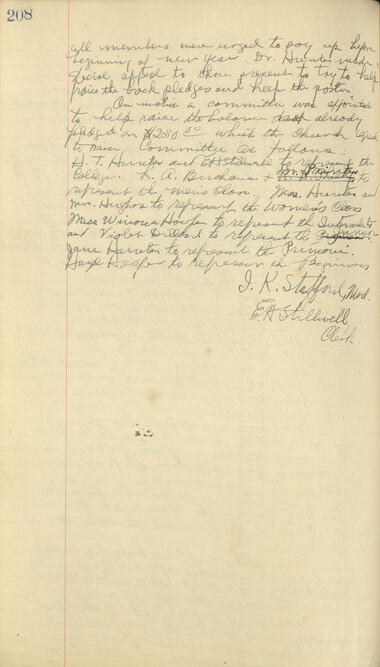 208
all members were urged to pay up before
beginning of new year. Dr. Hunter made
appeal to those present to try to help
raise the back pledges and help the pastor.
On motion a committee was appointed
to help raise the balance not already
pledged on $250.00 which the Church agreed
to raise. Committee as follows:
H. T. Hunter and E H Stillwell to represent the
College. L. A. Buchanan &
to represent the men's Class. Mrs. Hunter and
Mrs. Hughes to represent the Women's Class
Miss Winnie to represent the Intermediate
and Violet Dillard to represent the
Jane Hunter to represent the
to represent the Beginners
I. K. Stafford, Mod.
E H Stillwell
Clerk